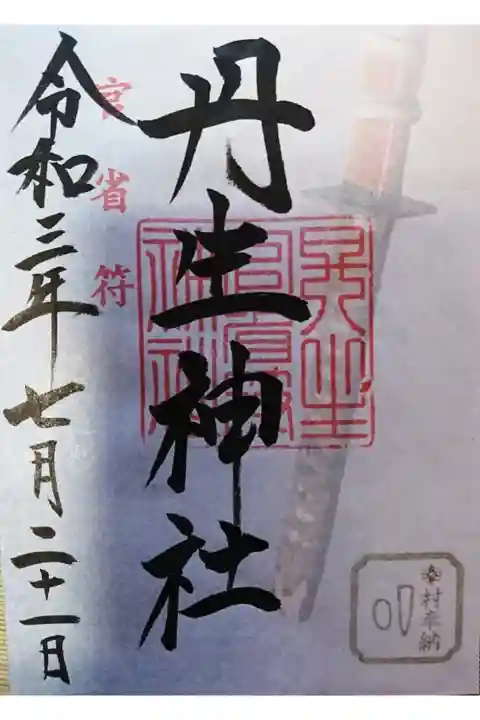 丹生神社
官省符
令和三年七月二十一日
幸村奉納